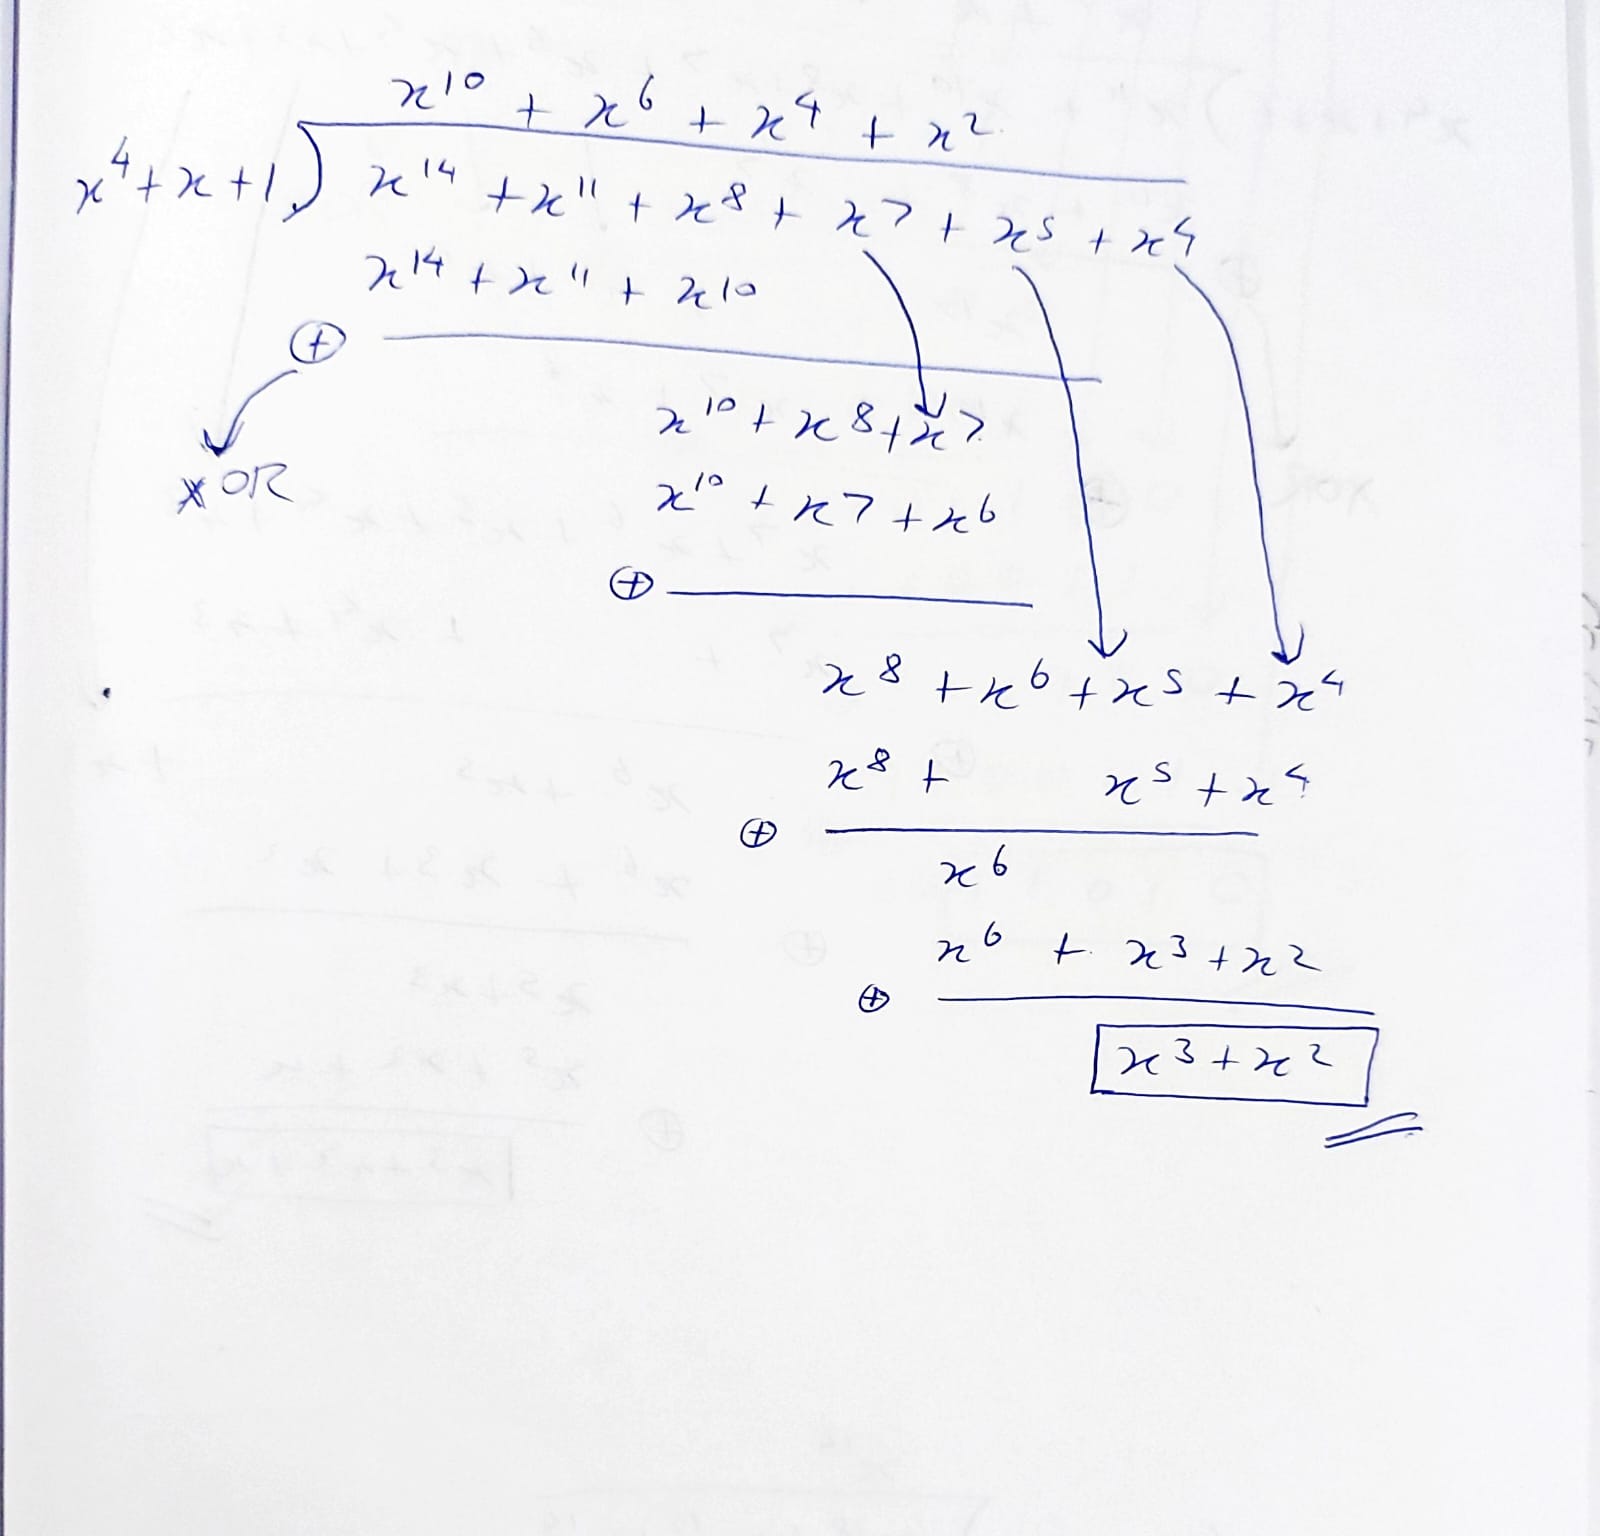 x¹⁰ + x⁶ + x⁴ + x²
x⁴+x+1) x¹⁴ +x¹¹ + x⁸ + x⁷ + x⁵ + x⁴
x¹⁴ + x¹¹ + x¹⁰
⊕
x¹⁰ + x⁸ + x⁷
XOR
x¹⁰ + x⁷ + x⁶
⊕
x⁸ + x⁶ + x⁵ + x⁴
x⁸ + x⁵ + x⁴
⊕
x⁶
x⁶ + x³ + x²
⊕
x³ + x²